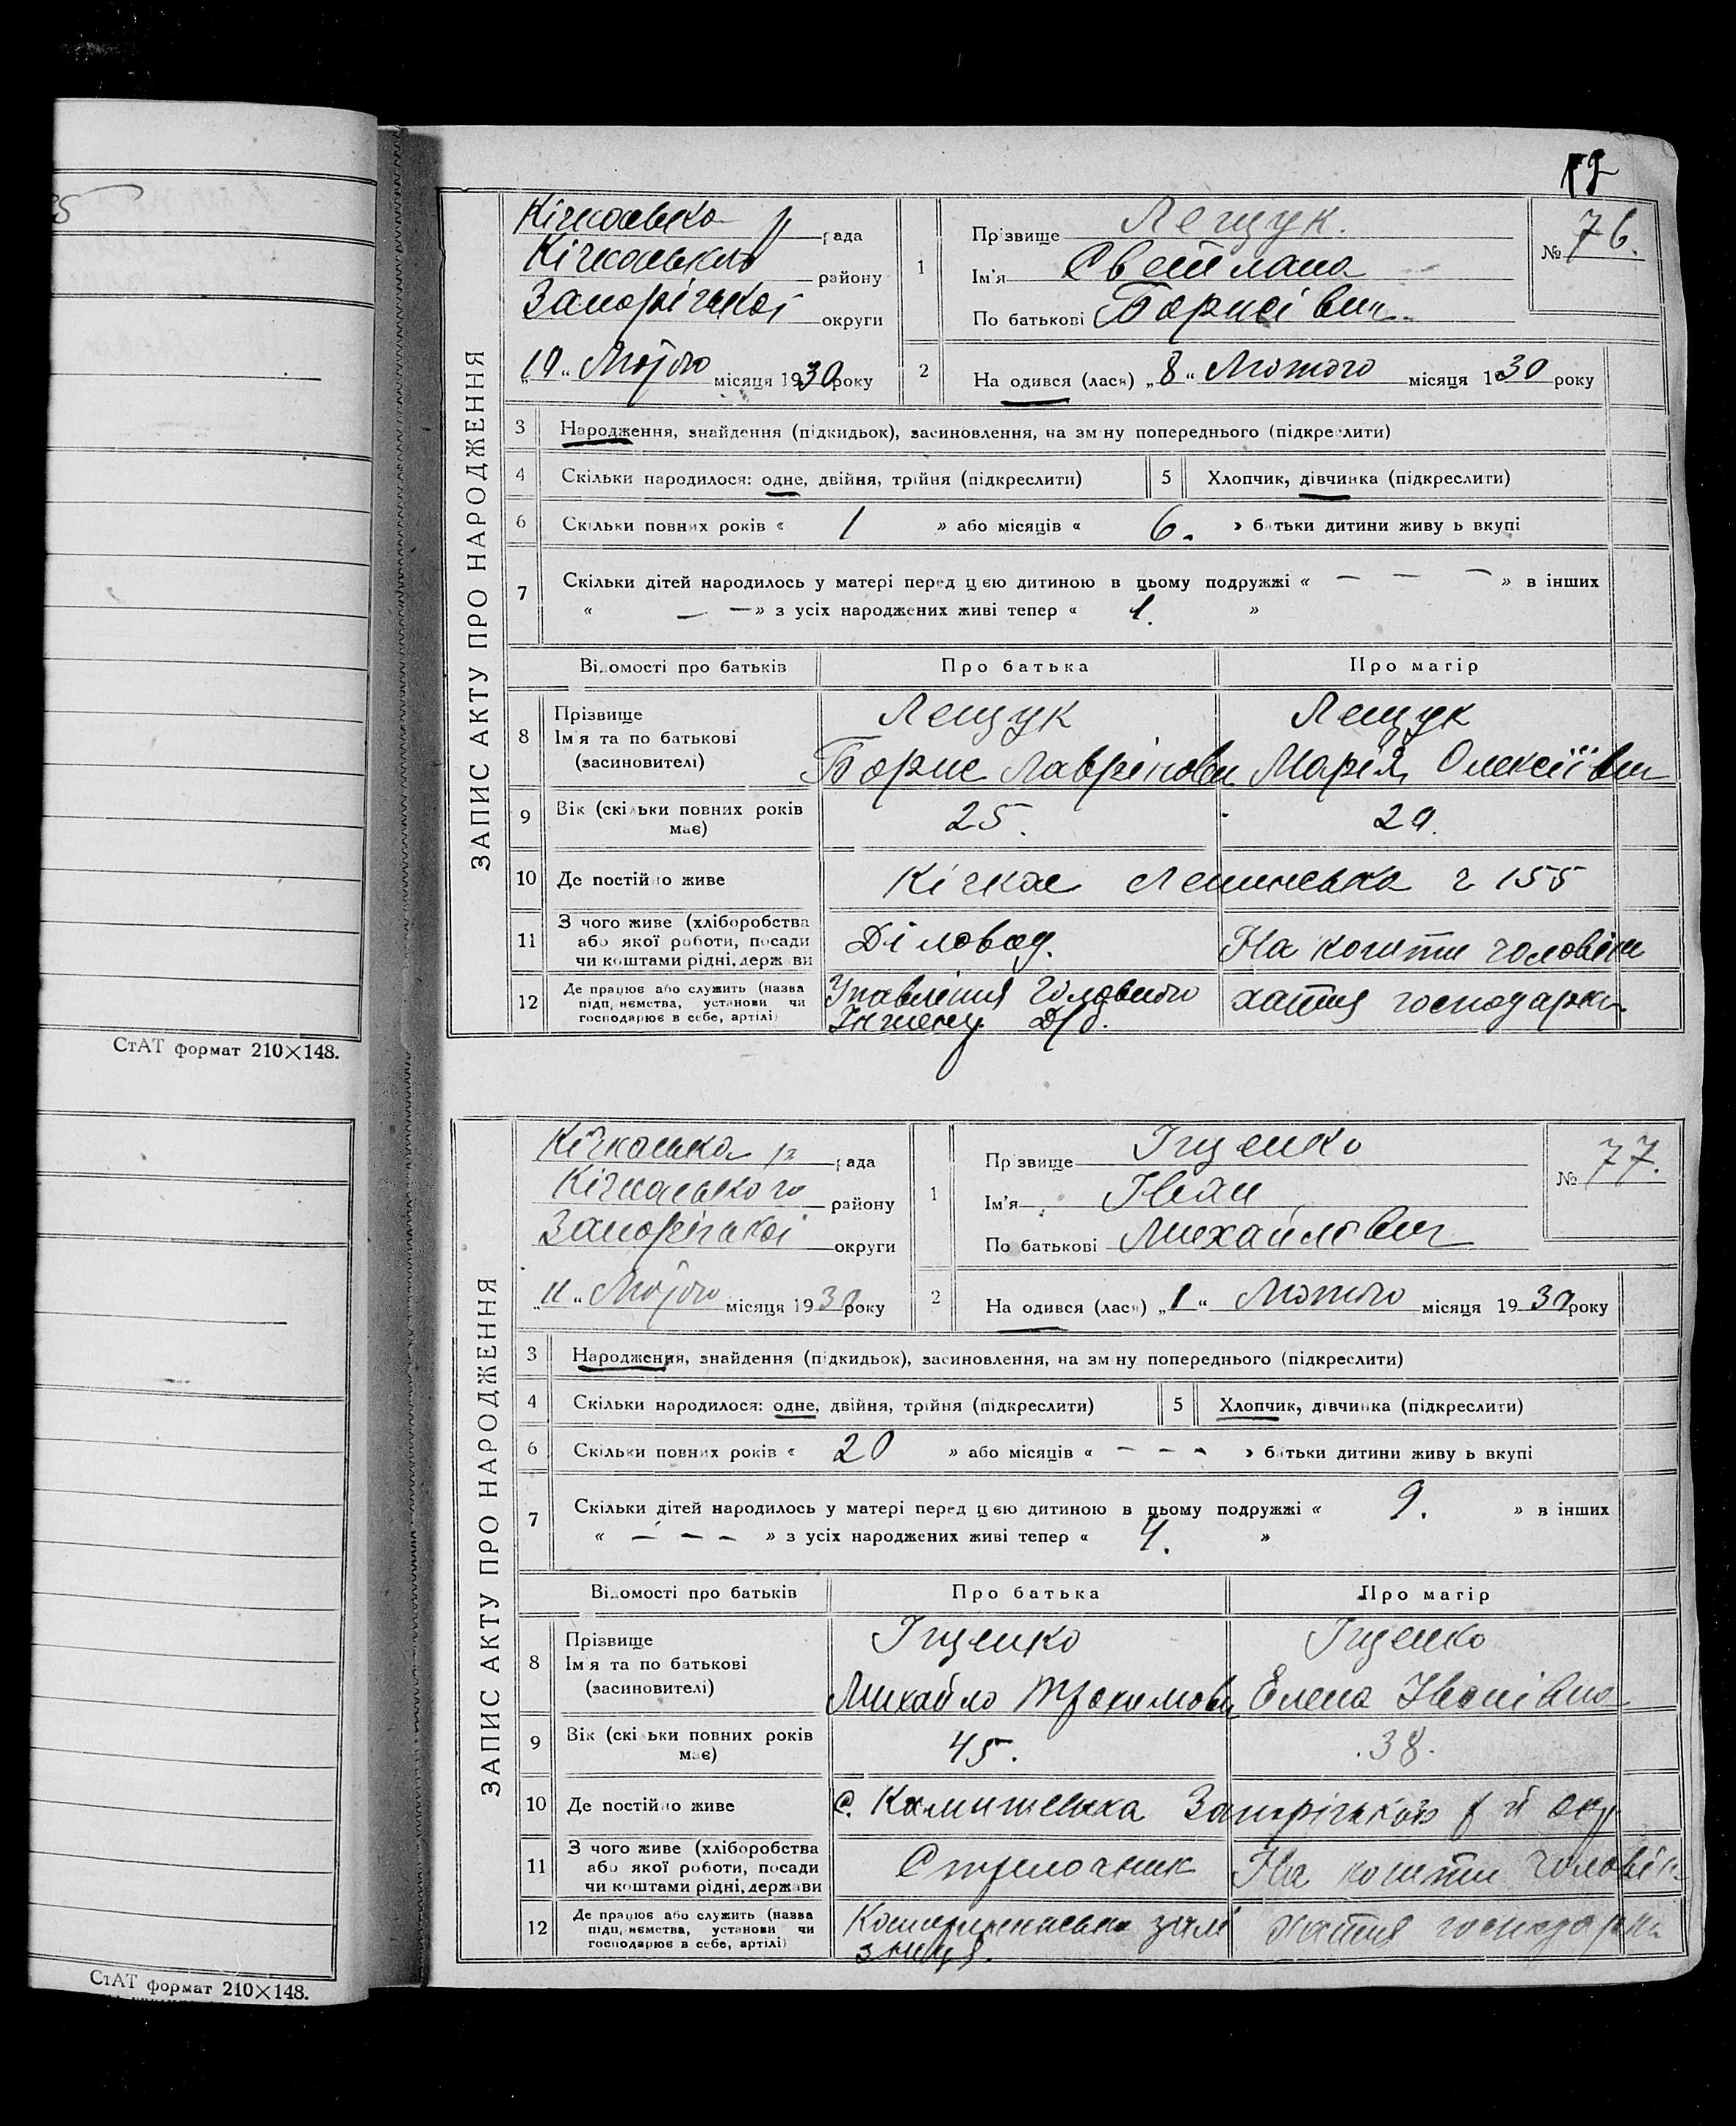 ЗАПИС АКТУ ПРО НАРОДЖЕННЯ
Кічкаська р рада
Кічкаського району
Запорізької округи
„10“ Лютого місяця 1930 року
1
Прізвище Лещук.
Ім'я Светлана
По батькові Борисівн.
№ 76.
2
Народився (лася) „8“ Лютого місяця 1930 року
3 Народження, знайдення (підкидьок), засиновлення, на зміну попереднього (підкреслити)
4 Скільки народилося: одне, двійня, трійня (підкреслити) 5 Хлопчик, дівчинка (підкреслити)
6 Скільки повних років « 1 » або місяців « 6. » батьки дитини живуть вкупі
7 Скільки дітей народилось у матері перед цією дитиною в цьому подружжі « — — — » в інших
« — — » з усіх народжених живі тепер « 1. »
Відомості про батьків Про батька Про матір
8 Прізвище
Ім'я та по батькові
(засиновителі)
Лещук
Борис Лаврінови
Лещук
Марія Олексіївн
9 Вік (скільки повних років
має)
25. 20.
10 Де постійно живе Кічкас Ленинська 2 155
11 З чого живе (хліборобства
або якої роботи, посади
чи коштами рідні, держави
Діловод. На кошти чоловіка
12 Де працює або служить (назва
підприємства, установи чи
господарює в себе, артілі)
Управління Головного
Інженер. Д/б.
хатня господарка
СтАТ формат 210×148.
ЗАПИС АКТУ ПРО НАРОДЖЕННЯ
Кічкаська р рада
Кічкаського району
Запорізької округи
„11“ Лютого місяця 1930 року
1
Прізвище Іщенко
Ім'я Іван
По батькові Михайлович
№ 77.
2
Народився (лася) „1“ Лютого місяця 1930 року
3 Народження, знайдення (підкидьок), засиновлення, на зміну попереднього (підкреслити)
4 Скільки народилося: одне, двійня, трійня (підкреслити) 5 Хлопчик, дівчинка (підкреслити)
6 Скільки повних років « 20 » або місяців « — — — » батьки дитини живуть вкупі
7 Скільки дітей народилось у матері перед цією дитиною в цьому подружжі « 9. » в інших
« — — — » з усіх народжених живі тепер « 4. »
Відомості про батьків Про батька Про матір
8 Прізвище
Ім'я та по батькові
(засиновителі)
Іщенко
Михайло Трохимови
Іщенко
Елена Іванівна
9 Вік (скільки повних років
має)
45. 38.
10 Де постійно живе с. Камишеваха Запорізької окр
11 З чого живе (хліборобства
або якої роботи, посади
чи коштами рідні, держави
Стрелочник На кошти чоловік
12 Де працює або служить (назва
підприємства, установи чи
господарює в себе, артілі)
залі
зниця.
хатня господарка
СтАТ формат 210×148.